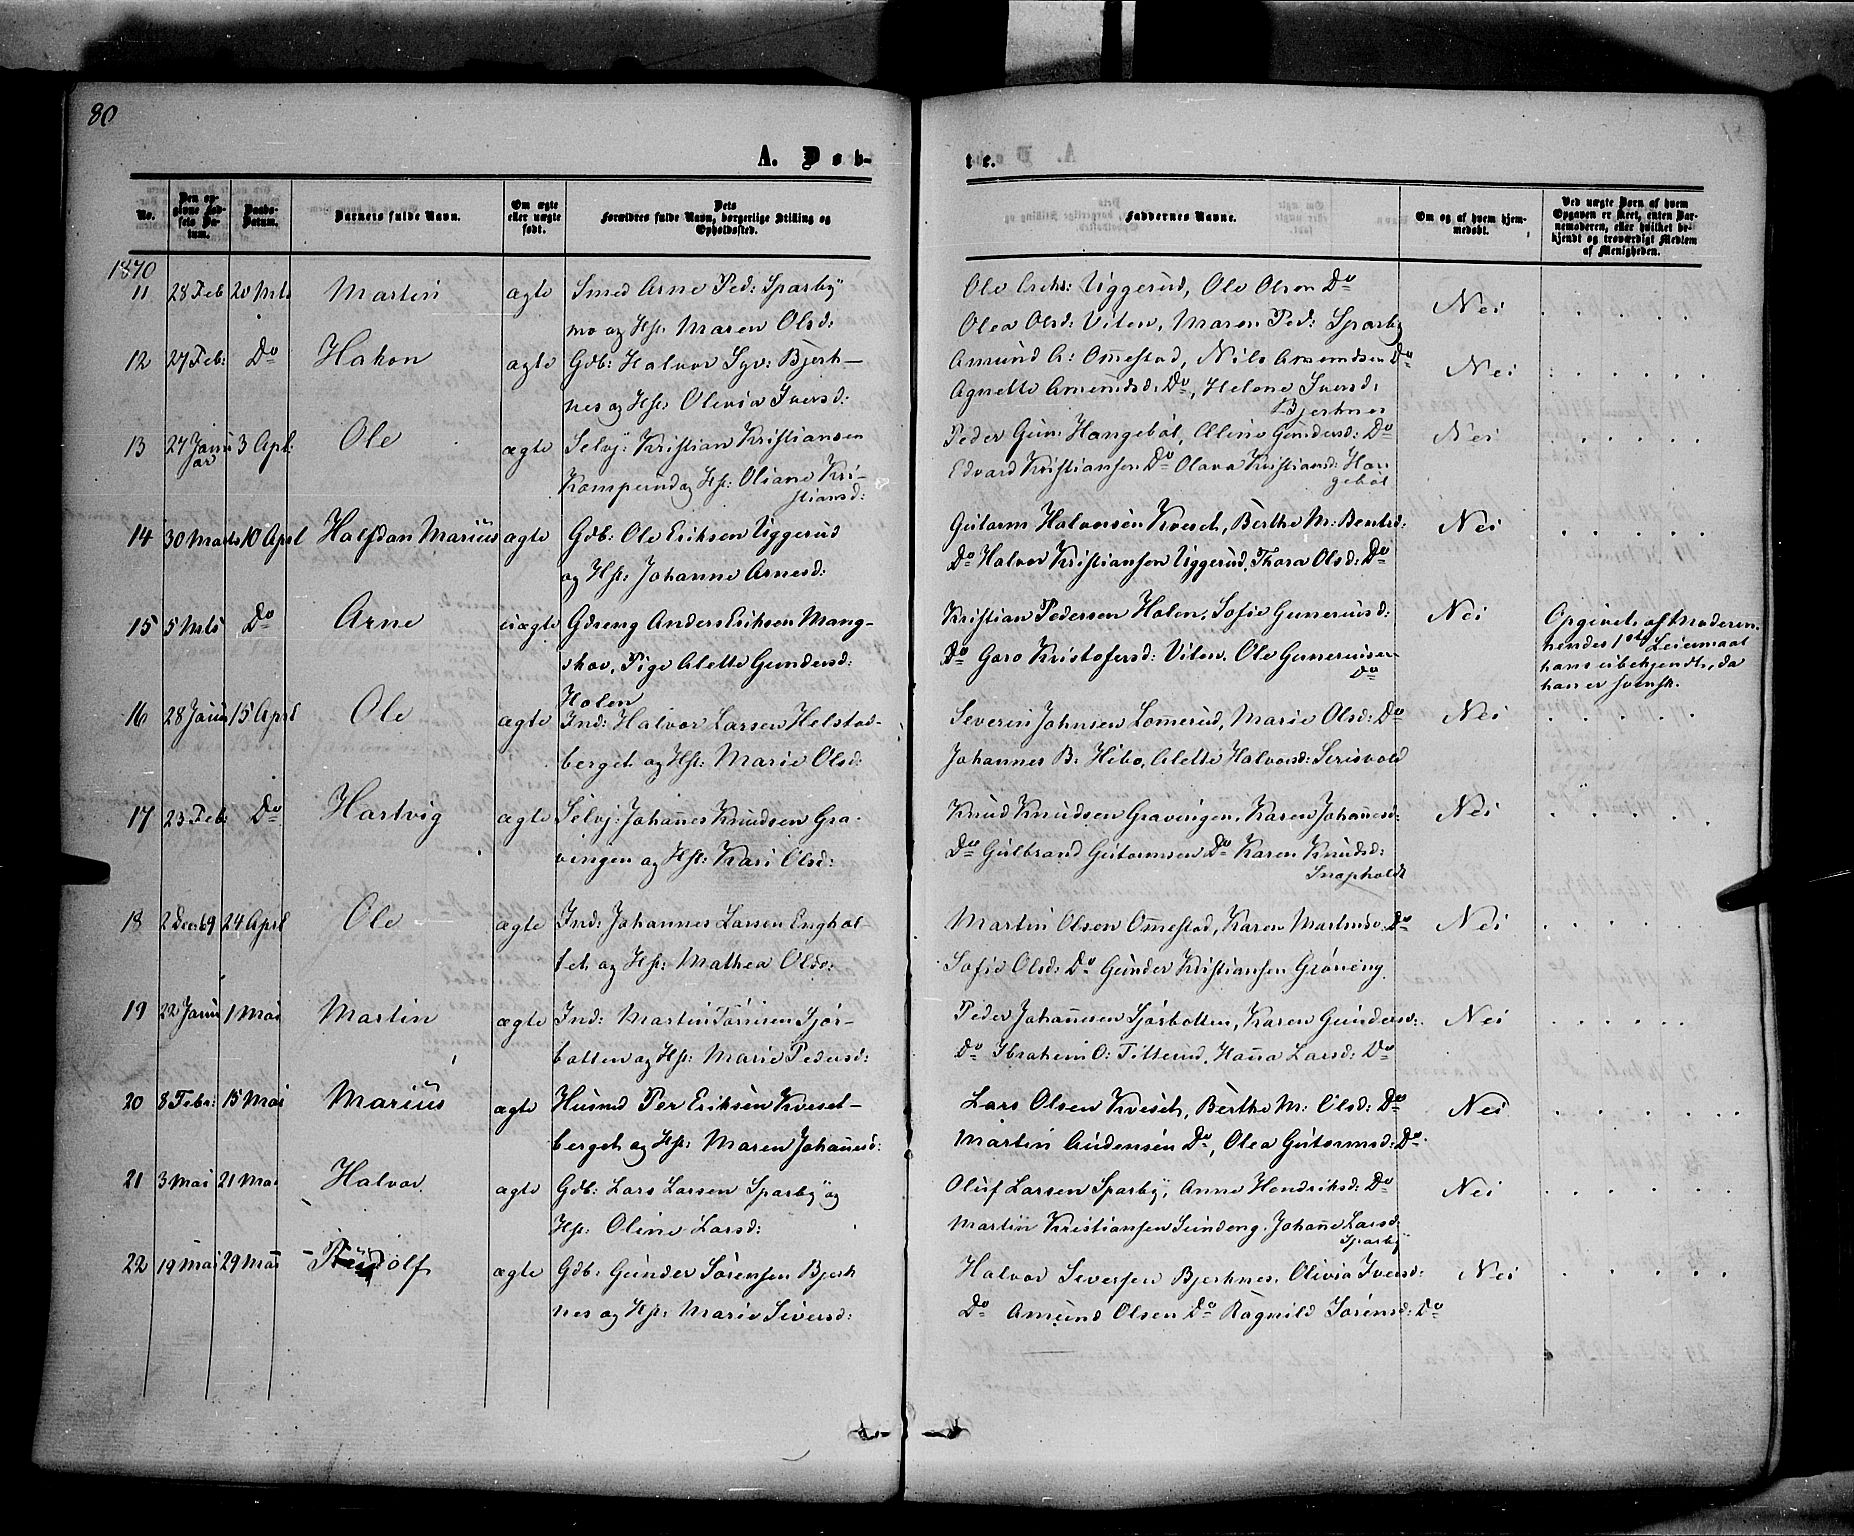 80
A. Døb-
te.
No.
Den op-
givne Fød-
sels Da-
tum.
Daabs-
Datum.
Barnets fulde Navn.
Om ægte
eller uægte
født.
Dets
Forældres fulde Navn, borgerlige Stilling og
Opholdssted.
Faddernes Navne.
Om og af hvem hjem-
medøbt.
Ved uægte Børn af hvem
Opgaven er skeet, enten Bar-
nemoderen, eller hvilket be-
kjendt og troværdigt Medlem
af Menigheden.
1870
11 28 Feb 20 Mts Martin ægte Smed Arne Ped: Sparby
mo og Hst: Maren Olsd:
Ole Eriks: Uggerud, Ole Olsen Do
Olea Olsd: Viten, Maren Ped: Sparby
Nei
12 27 Feb: Do Hakon ægte Gdb: Halvor Syv: Bjerk-
nes og Hst: Olivia Iversd:
Amund A: Ommestad, Nils Amundsen Do
Agnette Amundsd: Do, Helene Iversd:
Bjerknes
Nei
13 27 Janu
ar 3 Apl: Ole ægte Selvj: Kristian Kristiansen
Kamperud og Hst: Oliane Kri-
stiansd:
Peder Gun: Hangebøl, Eline Gundersd: Do
Edvard Kristiansen Do Olava Kristiansd: Han
gebøl
Nei
14 30 Marts 10 Aprl Halfdan Marius ægte Gdb: Ole Eriksen Uggerud
og Hst: Johanne Arnesd:
Gutorm Halvorsen Kveset, Berthe M: Bentsd:
Do Halvor Kristiansen Uggerud, Thora Olsd: Do
Nei
15 5 Mts Do Arne uægte Gdreng Anders Eriksen Mang-
skov, Pige Alette Gundersd:
Holen
Kristian Pedersen Holen, Sofie Gunerusd:
Do Garo Kristofersd: Viten, Ole Gunerusen
Do
Nei
Opgivet af Moderen
hendes 1ste Leiermaal
hans ubekjendt, da
han er svensk.
16 28 Janu 15 Aprl Ole ægte Ind: Halvor Larsen Helstad-
berget og Hst: Marie Olsd:
Severin Johnsen Lomerud, Marie Olsd: Do
Johannes B: Hibo, Alette Halvorsd:
Nei
17 23 Feb Do Hartvig ægte Selvj: Johannes Knudsen Gra-
vingen og Hst: Kari Olsd:
Knud Knudsen Gravingen, Karen Johannesd:
Do Gulbrand Gutormsen Do Karen Knudsd:
Snapholdt
Nei
18 2 Dec 69 24 Aprl Ole ægte Ind: Johannes Larsen Enghol
tet og Hst: Mathea Olsd:
Martin Olsen Ommestad, Karen Martinsd: Do
Sofie Olsd: Do Gunder Kristiansen Grøneng.
Nei
19 22 Janu 1 Mai Martin ægte Ind: Martin Tørrisen Sjør-
botten og Hst: Marie Pedersd:
Peder Johannesen Sjørbotten, Karen Gundersd:
Do Ibrahim O: Titterud, Hanna Larsd: Do
Nei
20 8 Febr: 15 Mai Marius ægte Husmd Per Eriksen Kveset-
berget og Hst: Maren Johannesd:
Lars Olsen Kveset, Berthe M: Olsd: Do
Martin Audensen Do, Olea Gutormsd: Do
Nei
21 3 Mai 21 Mai Halvor ægte Gdb: Lars Larsen Sparby og
Hst: Oline Larsd:
Oluf Larsen Sparby, Anne Hendriksd: Do
Martin Kristiansen Sundeng, Johanne Larsd:
Sparby
Nei
22 19 Mai 29 Mai Rudolf ægte Gdb: Gunder Sørensen Bjerk
nes og Hst: Marie Siversd:
Halvor Seversen Bjerknes, Olivia Iversd:
Do Amund Olsen Do Ragnild Sørensd: Do
Nei